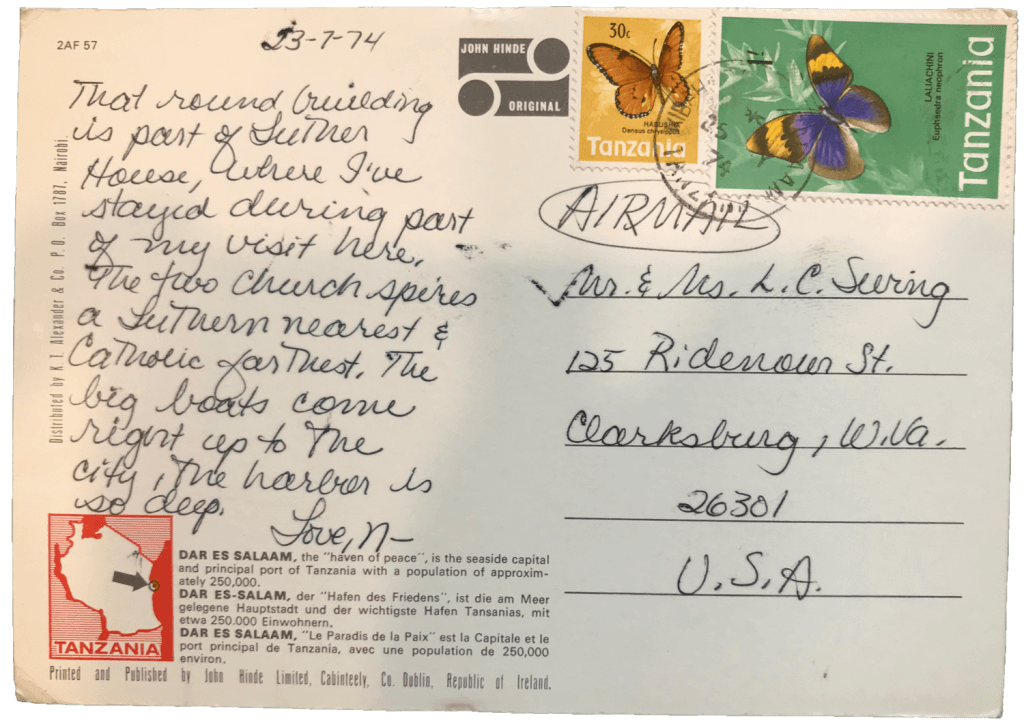 2AF 57
23-7-74
JOHN HINDE
ORIGINAL
That round building
is part of Luther
House, where I've
stayed during part
of my visit here.
The two church spires
a Luthern nearest &
Catholic farthest. The
big boats come
right up to the
city, the harbor is
so deep.
Love, N-
Distributed by K. T. Alexander & Co. P. O. Box 1787, Nairobi.
TANZANIA
DAR ES SALAAM, the "haven of peace", is the seaside capital
and principal port of Tanzania with a population of approxim-
ately 250,000.
DAR ES-SALAM, der "Hafen des Friedens", ist die am Meer
gelegene Hauptstadt und der wichtigste Hafen Tansanias, mit
etwa 250.000 Einwohnern.
DAR ES SALAAM, "Le Paradis de la Paix" est la Capitale et le
port principal de Tanzania, avec une population de 250,000
environ.
Printed and Published by John Hinde Limited, Cabinteely, Co. Dublin, Republic of Ireland.
30c
HABUSI
Danaus chrysippus
Tanzania
1/-
LALIACHINI
Euphaedra neophron
Tanzania
25
74
AIRMAIL
Mr. & Ms. L. C. Suring
125 Ridenour St.
Clarksburg, W.Va.
26301
U.S.A.